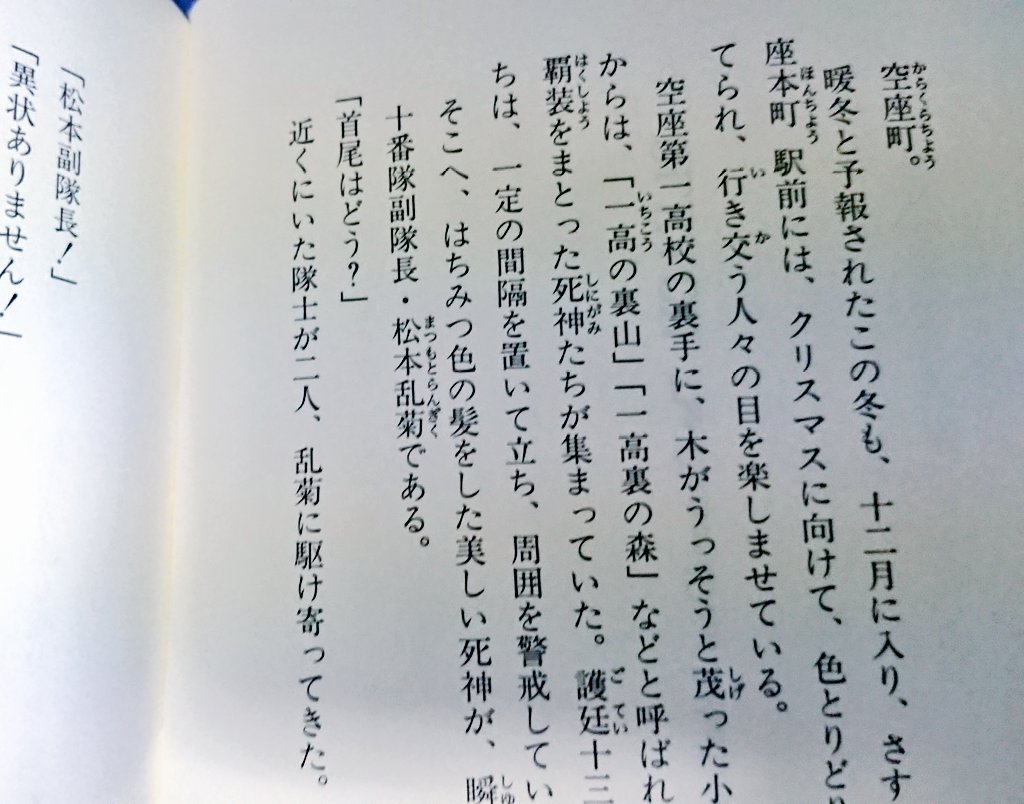 空座町。
暖冬と予報されたこの冬も、十二月に入り、さす
座本町駅前には、クリスマスに向けて、色とりどり
てられ、行き交う人々の目を楽しませている。
空座第一高校の裏手に、木がうっそうと茂った小
からは、「一高の裏山」「一高裏の森」などと呼ばれ
覇装をまとった死神たちが集まっていた。護廷十三
ちは、一定の間隔を置いて立ち、周囲を警戒してい
そこへ、はちみつ色の髪をした美しい死神が、瞬
十番隊副隊長・松本乱菊である。
「首尾はどう?」
近くにいた隊士が二人、乱菊に駆け寄ってきた。
「松本副隊長!」
「異状ありません!」